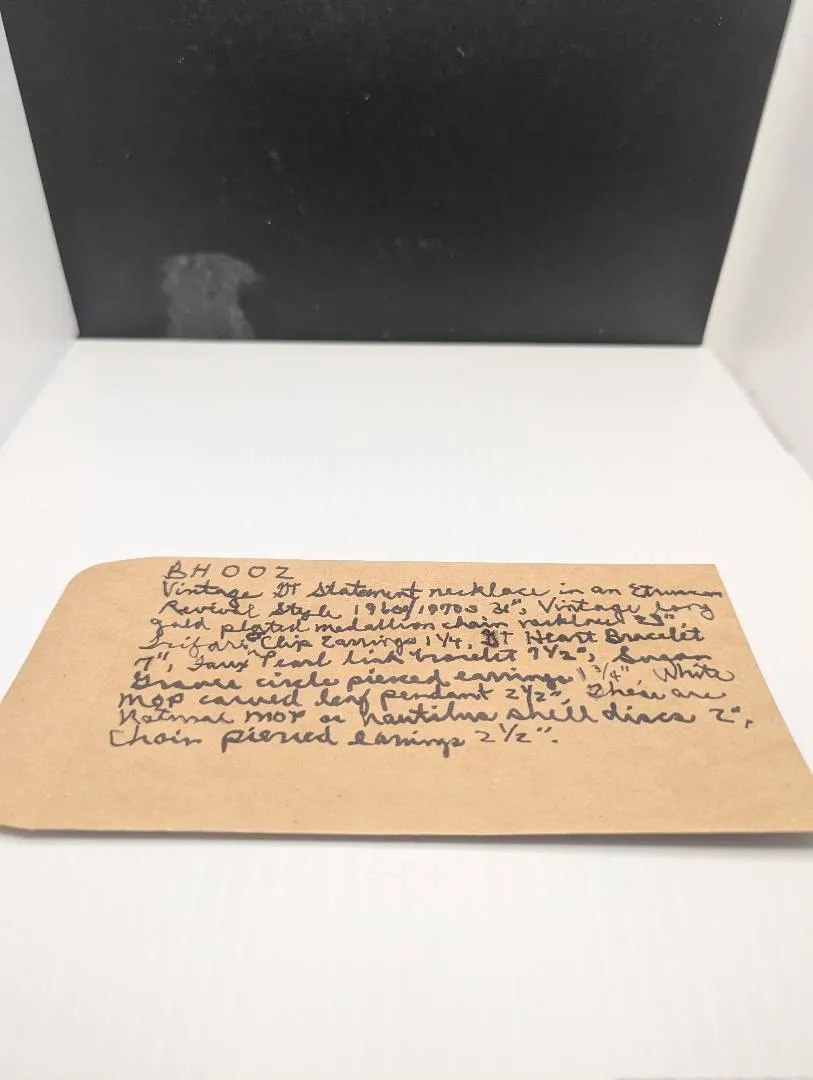 BH 002
Vintage GT Statement necklace in an Etruscan
Revival Style 1960s/1970s 31", Vintage long
gold plated medallion chain necklace 25",
Trifari Clip Earrings 1 1/4, GT Heart Bracelet
7", Faux Pearl link bracelet 7 1/2", Susan
Graver circle pierced earrings 1 3/4", White
MOP carved leaf pendant 2 1/2", These are
Natural MOP or nautilus shell discs 2",
Chain pierced earrings 2 1/2".